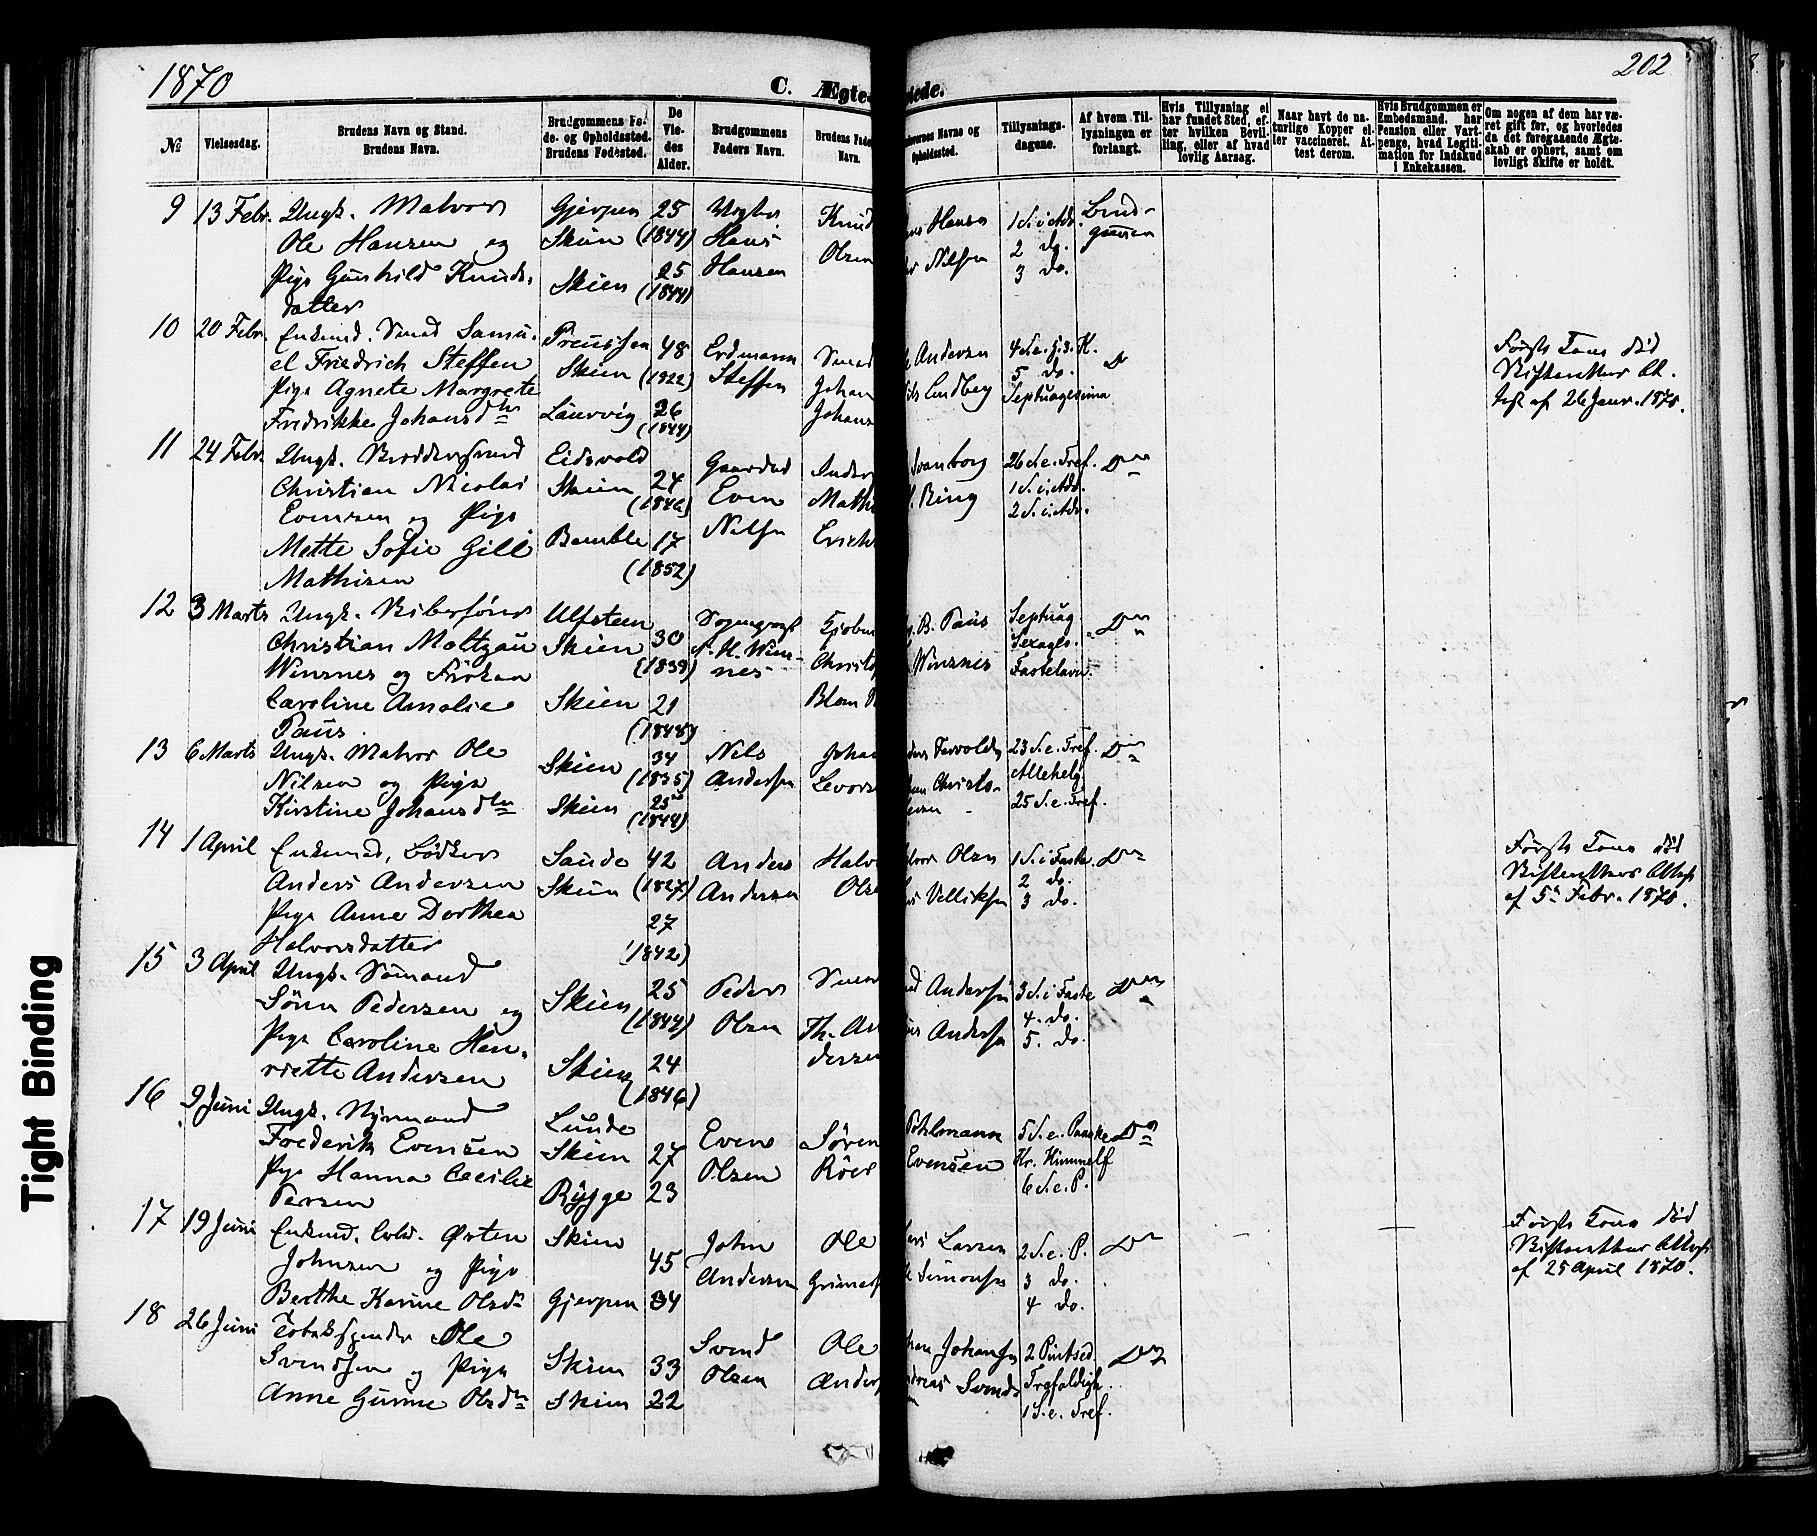 1870
C. Ægte
tede.
202
No
Vielsesdag.
Brudens Navn og Stand.
Brudens Navn.
Brudgommens Fø-
de- og Opholdssted.
Brudens Fødested.
De
Vie-
des
Alder.
Brudgommens
Faders Navn.
Brudens Fade
Navn.
levernes Navne og
Opholdssted.
Tillysnings-
dagene.
Af hvem Til-
lysningen er
forlangt.
Hvis Tillysning ei
har fundet Sted, ef-
ter hvilken Bevil-
ling, eller af hvad
lovlig Aarsag.
Naar havt de na-
turlige Kopper el-
ler vaccineret. At-
test derom.
Hvis Brudgommen er
Embedsmand, har
Pension eller Vart-
penge, hvad Legiti-
mation for Indskud
i Enkekassen.
Om nogen af dem har væ-
ret gift før, og hvorledes
da det foregaaende Ægte-
skab er ophørt, samt om
lovligt Skifte er holdt.
9 13 Febr. Ungk. Matros Gjerpen 25 Knud Hansen 1 S. i Adv. Brud-
Ole Hansen og Skien (1844) Hans Olsen Nilsen 2 do. gommen
Pige Gunhild Knuds- Skien 25 Hansen 3 do.
datter (1844)
10 20 Febr. Enkemd. Smed Samu- Preussen 48 Erdmann Smed Andersen 4 S. e. H. 3. K. D Første Kone død
el Friedrich Steffen Skien (1822) Steffen Johan Lindberg 5 do. Skifterettens At-
Pige Agnete Margrete Laurvig 26 Johans Septuagesima test af 26 Janr. 1870.
Fredrikke Johansdtr (1844)
11 24 Febr. Ungk. Eidsvold 24 Gaardmd Anders Svanborg 26 S. e. Tref. Do
Christian Nicolai Skien (1846) Even Mathi Ring 1 S. i Adv.
Evensen og Pige Nilsen 2 S. i Adv.
Mette Sofie Gill Bamble 17 Erichs
Mathisen (1852)
12 3 Marts Ungk. Skibsfører Ulfsten 30 Sogneprest Kjøbm B. Paus Septuag Do
Christian Moltzau Skien (1839) H. Wins- Christ Winsnes Sexages.
Winsnes og Frøken nes Blom P Fastelavn.
Caroline Amalie Skien 21
Paus. (1848)
13 6 Marts Ungk. Matros Ole Skien 34 Nils Johan 23 S. e. Tref. Do
Nilsen og Pige (1835) Andersen Levors Christo- Allehelg
Kirstine Johansdtr Skien 25 25 S. e. Tref.
(1844)
14 1 April Enkemd. Bødker Saude 42 Anders Halv Olsen 1 S. i Faste Do Første Kone død
Anders Andersen Skien (1827) Andersen Olse Velliksen 2 do. Skifterettens Attest
Pige Anne Dorthea 27 3 do. af 5te Febr. 1870.
Halvorsdatter (1842)
15 3 April Ungk. Sømand Skien 25 Peder Smed Andersen 3 S. i Faste Do
Søren Pedersen og (1844) Olsen Th. An Andersen 4. do.
Pige Caroline Hen- Skien 24 dersen 5. do.
riette Andersen (1846)
16 9 Juni Ungk. Lunde Even Søren Pohlmann 5 S. e. Paaske Do
Frederik Evensen Skien 27 Olsen Røer Evensen Kr. Himmelf
Pige Hanna Cecilie Rygge 23 6 S. e. P.
Persen
17 19 Juni Enkemd. Østen Skien 45 John Ole Larsen 2 S. e. P. Do – – Første Kone død
Johnsen og Pige Andersen Simonsen 3 do. Skifterettens Attest
Berthe Karine Olsdtr Gjerpen 34 4 do. af 25 April 1870.
18 26 Juni Tobakspinder Ole Skien 33 Svend Ole Johansen 2 Pintsed. Do
Svendsen og Pige Olsen Anders Svends Trefoldigh.
Anne Gurine Olsdtr Skien 22 1 S. e. Tref.
Tight Binding